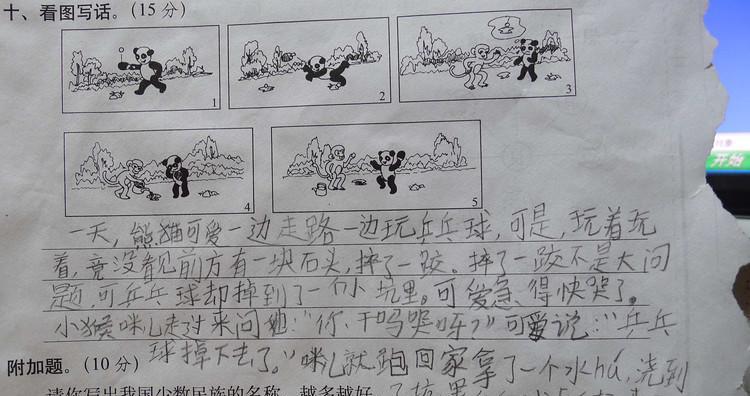 十、看图写话。(15 分)
1
2
3
4
5
一天,熊猫可爱一边走路一边玩乒乓球,可是,玩着玩
着,竟没看见前方有一块石头,摔了一跤。摔了一跤不是大问
题,可乒乓球却掉到了一个小坑里。可爱急得快哭了。
小猴咪儿走过来问他:"你干吗哭呀?"可爱说:"乒乓
球掉下去了。"咪儿就跑回家拿了一个水hú,浇到
附加题。(10 分)
请你写出我国少数民族的名称,越多越好
了坑里
开始